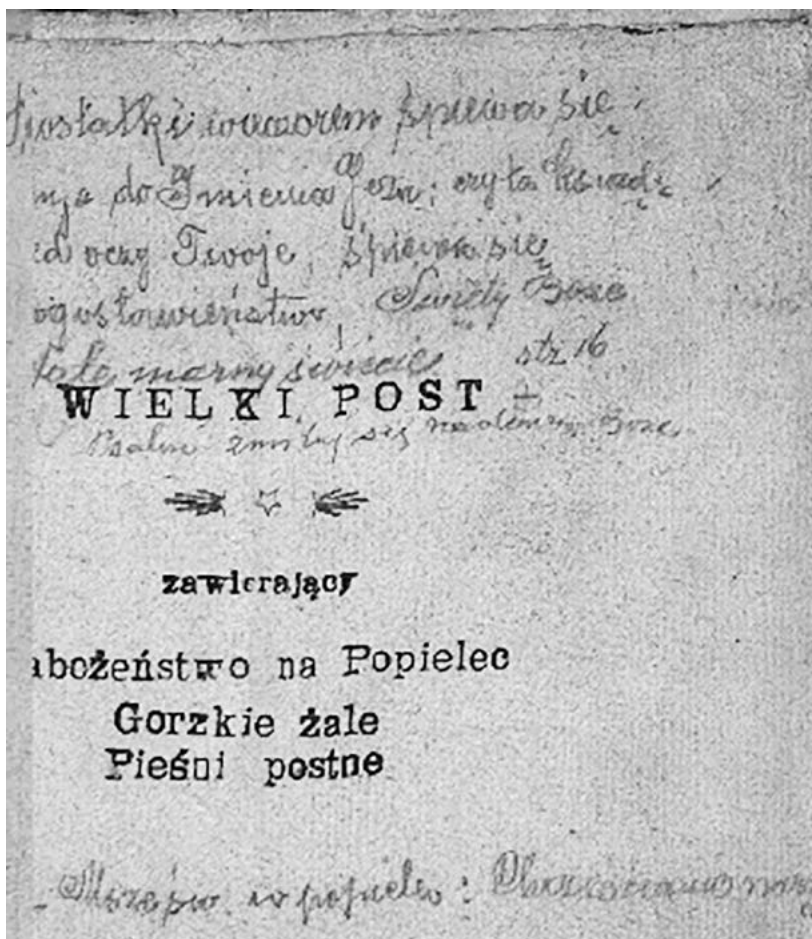 wieczorem śpiewa się
do Imienia Jezu; czyta ksiądz
oczy Twoje, śpiewa się
ogosławieństwo, Święty Boże
marny świecie str 16
WIELKI POST
Psalm zmiłuj się nademną Boże
zawierający
abożeństwo na Popielec
Gorzkie żale
Pieśni postne
w popielec: